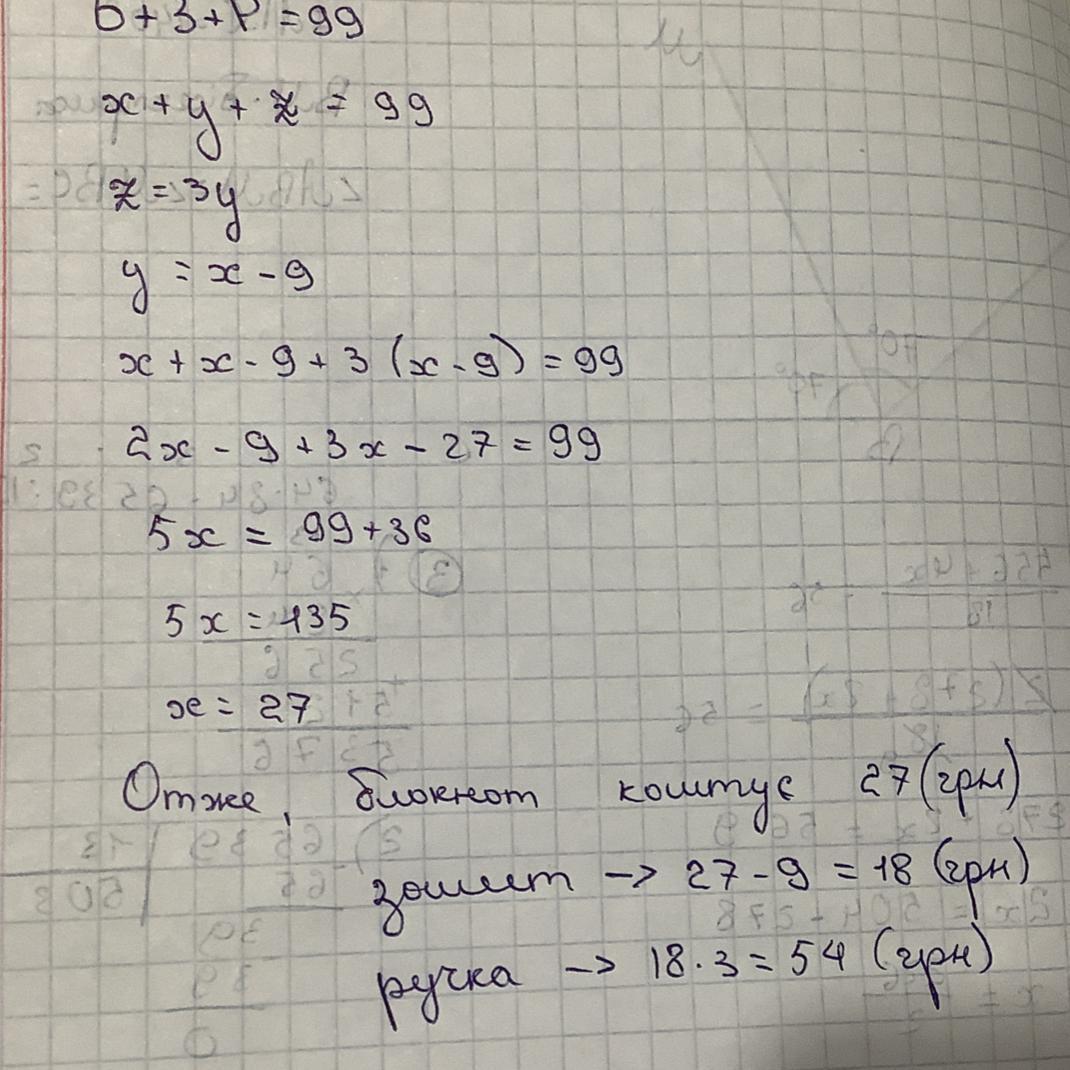 Б+З+Р =99
x+y+z = 99
z=3y
y = x-9
x+x-9+3(x-9)=99
2x-9+3x-27=99
5x = 99+36
5x=135
x= 27
Отже, блокнот коштує 27(грн)
зошит -> 27-9=18(грн)
ручка -> 18·3=54 (грн)